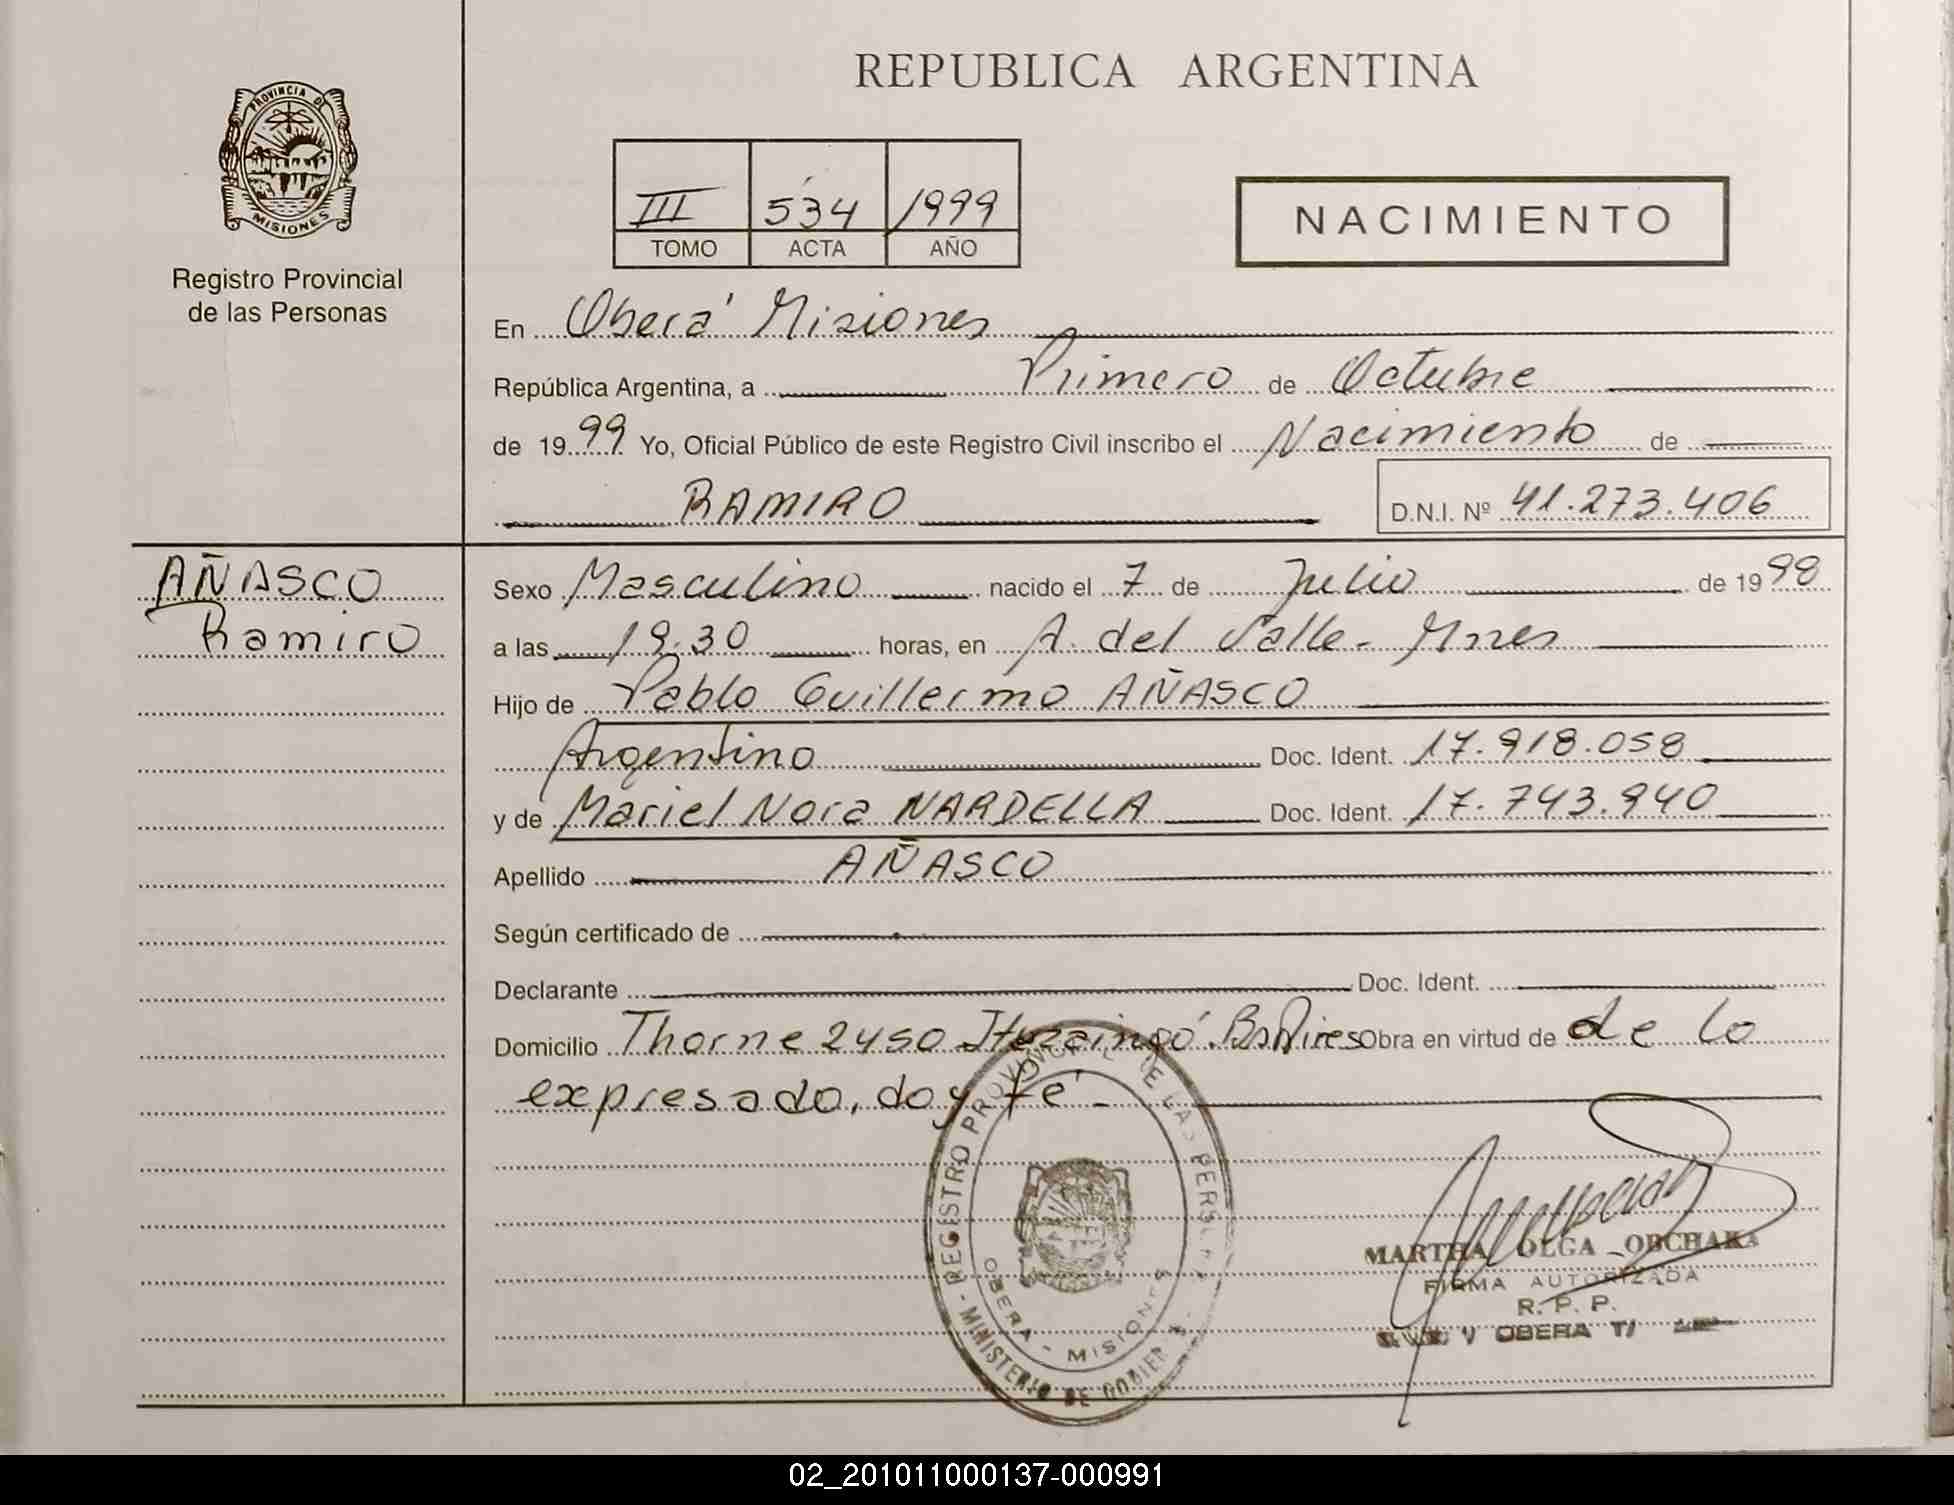 REPUBLICA ARGENTINA
PROVINCIA DE
MISIONES
Registro Provincial
de las Personas
III 534 1999
TOMO ACTA AÑO
NACIMIENTO
En Oberá Misiones
República Argentina, a Primero de Octubre
de 1999 Yo, Oficial Público de este Registro Civil inscribo el Nacimiento de
RAMIRO D.N.I. Nº 41.273.406
AÑASCO
Ramiro
Sexo Masculino nacido el 7 de Julio de 1998
a las 19.30 horas, en A. del Valle - Mnes
Hijo de Pablo Guillermo AÑASCO
Argentino Doc. Ident. 17.918.058
y de Mariel Nora NARDELLA Doc. Ident. 17.743.940
Apellido AÑASCO
Según certificado de
Declarante Doc. Ident.
Domicilio Thorne 2450 Ituzaingó Bs Aires Obra en virtud de de lo
expresado, doy fe -
REGISTRO PROVINCIAL DE LAS PERSONAS
OBERA - MISIONES
- MINISTERIO DE GOBIER
MARTHA OLGA OBCHAKA
FIRMA AUTORIZADA
R. P. P.
OBERA
02_201011000137-000991